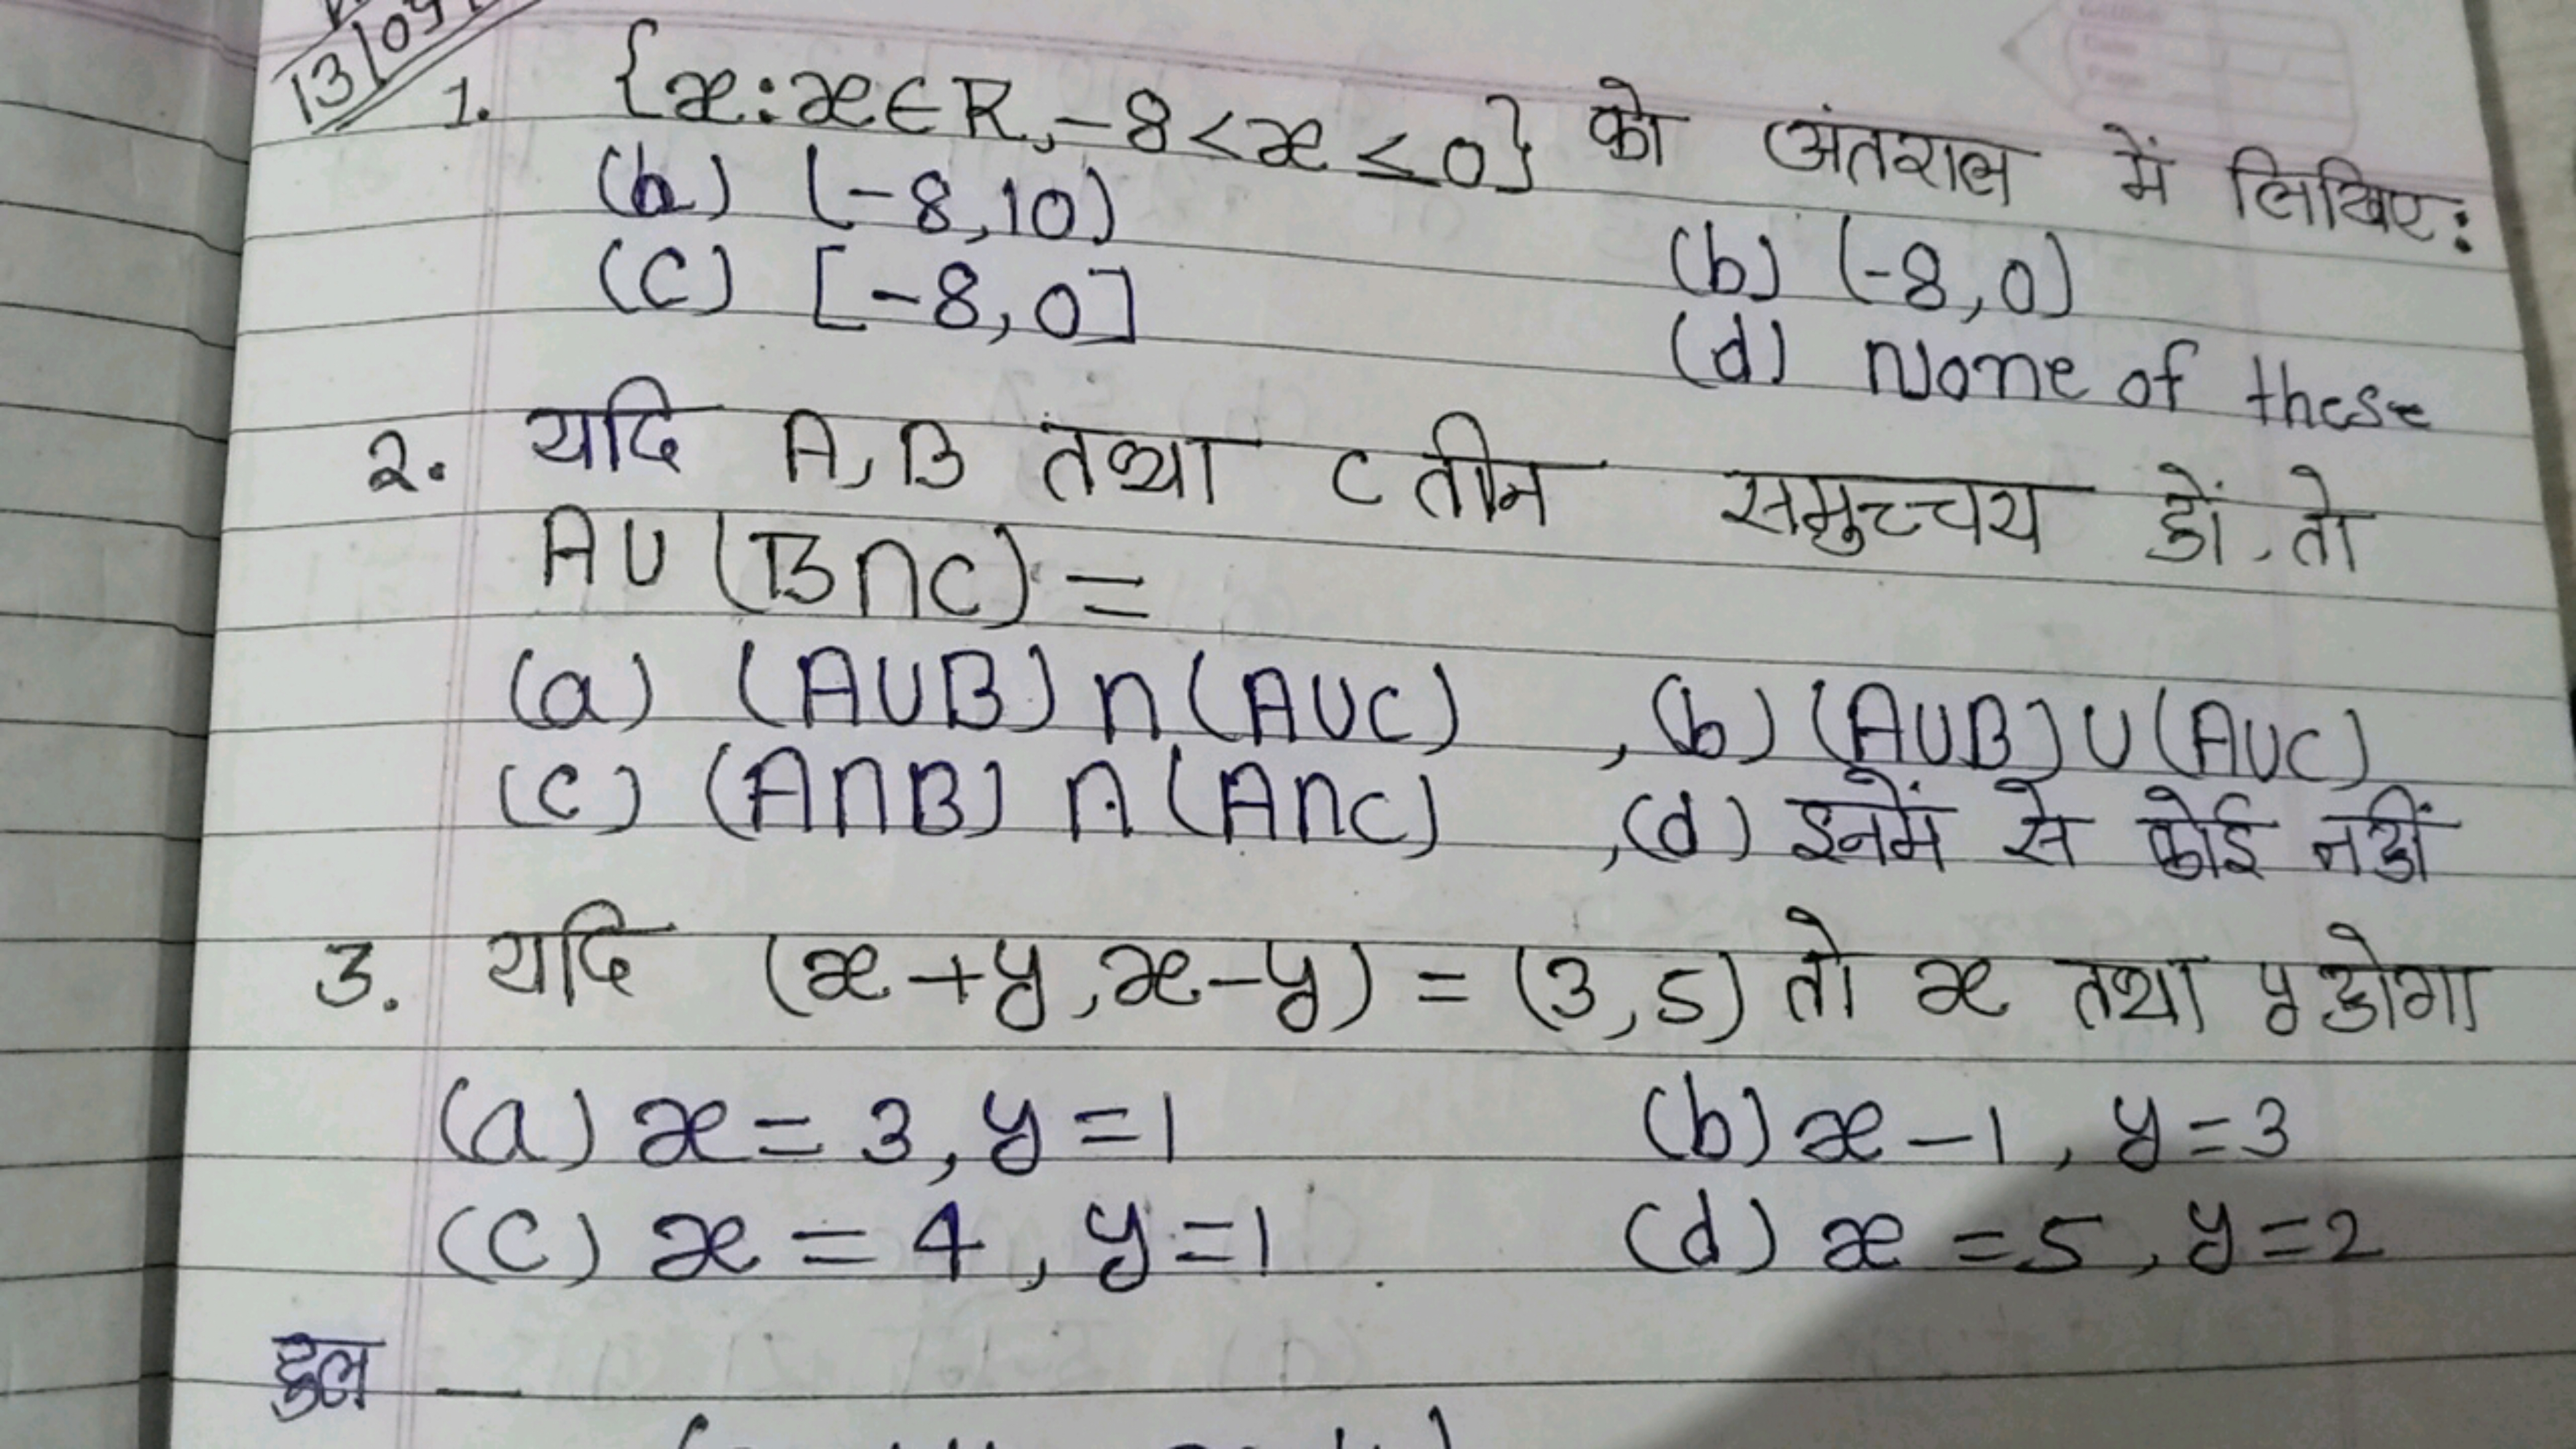 13/09
1. {x:x∈R,-8<x≤0} को अंतराल में लिखिए:
(a) (-8,10) (b) (-8,0)
(c) [-8,0] (d) None of these
2. यदि A,B तथा C तीन समुच्चय हों, तो
A∪(B∩C) =
(a) (A∪B)∩(A∪C) ,(b) (A∪B)∪(A∪C)
(c) (A∩B)∩(A∩C) ,(d) इनमें से कोई नहीं
3. यदि (x+y,x-y) = (3,5) तो x तथा y होगा
(a) x=3, y=1 (b) x-1, y=3
(c) x=4, y=1 (d) x=5, y=2
हल —